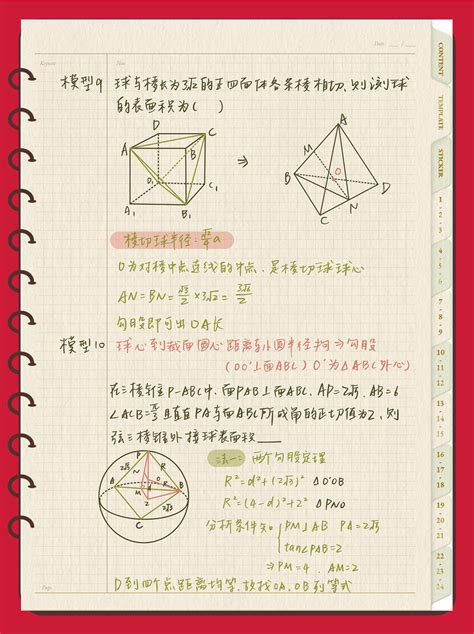 Date. / /
Keyword
Note.
模型9 球与棱长为3√2的正四面体各条棱相切,则该球
的表面积为( )
D
C
A
B
D₁
A₁
B₁
⇒
A
M
B
O
D
C
N
棱切球半径:
O为对棱中点连线的中点,是棱切球球心
AN=BN=√3/2×3√2=3√6/2
勾股即可出OA长
模型10 球心到截面圆心距离与外圆半径构⇒勾股
(OO'⊥面ABC) O'为△ABC外心)
在三棱锥P-ABC中,面PAB⊥面ABC, AP=2√5, AB=6
∠ACB=π/3且直线PA与面ABC所成角的正切值为2,则
三棱锥外接球表面积
P
2√5
N
A
B
O
2√3
C
法一: 两个勾股定理
R²=d²+(2√3)² △O'OB
R²=(4-d)²+2² △PNO
分析条件知 PM⊥AB PA=2√5
tan∠PAB=2
⇒PM=4, AM=2
O到四个点距离均等,故找OA,OB列等式
Page.
CONTENT
TEMPLATE
STICKER
1 - 2 - 3
4 - 5 - 6
7 - 8 - 9
10 - 11 - 12
13 - 14 - 15
16 - 17 - 18
19 - 20 - 21
22 - 23 - 24